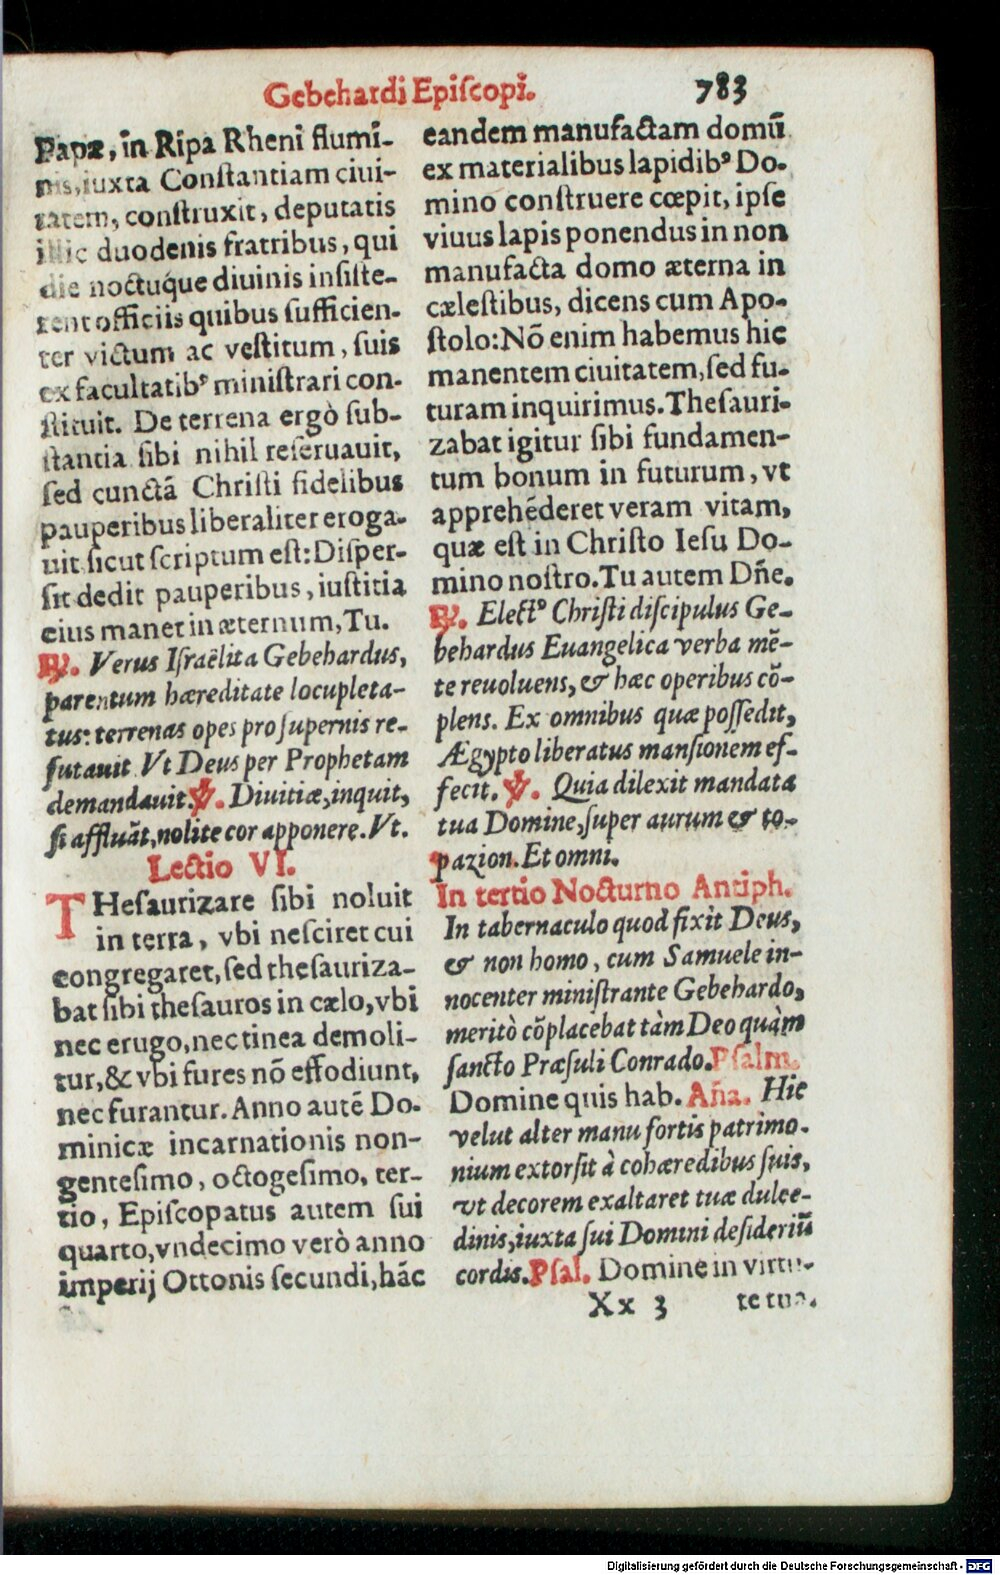 Gebehardi Epiſcopi. 783
Papæ, in Ripa Rheni flumi-
nis, iuxta Conſtantiam ciui-
tatem, conſtruxit, deputatis
illic duodenis fratribus, qui
die noctuq́ue diuinis inſiſte-
rent officiis quibus ſufficien-
ter victum ac veſtitum, ſuis
ex facultatibꝰ miniſtrari con-
ſtituit. De terrena ergò ſub-
ſtantia ſibi nihil reſeruauit,
ſed cunctã Chriſti fidelibus
pauperibus liberaliter eroga-
uit ſicut ſcriptum eſt: Diſper-
ſit dedit pauperibus, iuſtitia
eius manet in æternum, Tu.
℟. Verus Iſraëlita Gebehardus,
parentum hæreditate locupleta-
tus: terrenas opes pro ſupernis re-
futauit Vt Deus per Prophetam
demandauit. ℣. Diuitiæ, inquit,
ſi affluãt, nolite cor apponere. Vt.
Lectio VI.
THeſaurizare ſibi noluit
in terra, vbi neſciret cui
congregaret, ſed theſauriza-
bat ſibi theſauros in cælo, vbi
nec erugo, nec tinea demoli-
tur, & vbi fures nõ effodiunt,
nec furantur. Anno autẽ Do-
minicæ incarnationis non-
genteſimo, octogeſimo, ter-
tio, Epiſcopatus autem ſui
quarto, vndecimo verò anno
imperij Ottonis ſecundi, hãc
eandem manufactam domũ
ex materialibus lapidibꝰ Do-
mino conſtruere cœpit, ipſe
viuus lapis ponendus in non
manufacta domo æterna in
cæleſtibus, dicens cum Apo-
ſtolo: Nõ enim habemus hic
manentem ciuitatem, ſed fu-
turam inquirimus. Theſauri-
zabat igitur ſibi fundamen-
tum bonum in futurum, vt
apprehẽderet veram vitam,
quæ eſt in Chriſto Ieſu Do-
mino noſtro. Tu autem Dñe.
℟. Electꝰ Chriſti diſcipulus Ge-
behardus Euangelica verba mẽ-
te reuoluens, & hæc operibus cõ-
plens. Ex omnibus quæ poſſedit,
Ægypto liberatus manſionem ef-
fecit. ℣. Quia dilexit mandata
tua Domine, ſuper aurum & to-
pazion. Et omni.
In tertio Nocturno Antiph.
In tabernaculo quod fixit Deus,
& non homo, cum Samuele in-
nocenter miniſtrante Gebehardo,
meritò cõplacebat tàm Deo quàm
ſancto Præſuli Conrado. Pſalm.
Domine quis hab. Aña. Hic
velut alter manu fortis patrimo-
nium extorſit à cohæredibus ſuis,
vt decorem exaltaret tuæ dulce-
dinis, iuxta ſui Domini deſideriũ
cordis. Pſal. Domine in virtu-
Xx 3 te tua.
Digitalisierung gefördert durch die Deutsche Forschungsgemeinschaft - DFG